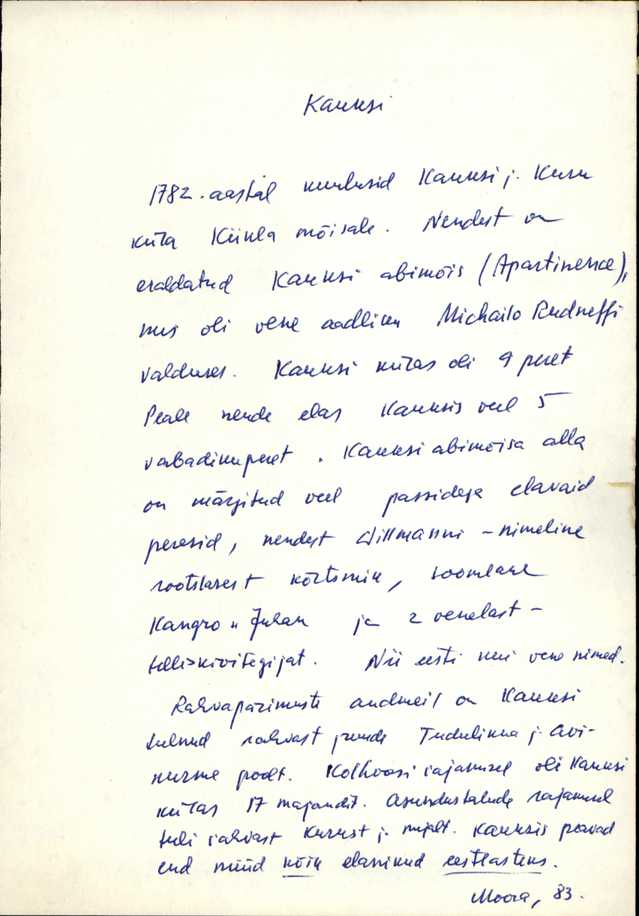 Kauksi
1782. aastal kuulusid Kauksi j. Kuru
küla Kiikla mõisale. Nendest on
eraldatud Kauksi abimõis (Apartinence),
mis oli vene aadliku Michailo Rudneffi
valduses. Kauksi külas oli 9 peret
Peale nende elas Kauksis veel 5
vabadikuperet. Kauksi abimõisa alla
on märgitud veel passidega elavaid
peresid, nendest Willmanni-nimeline
rootslasest kõrtsmik, soomlane
Kangro Juhan ja 2 venelast-
telliskivitegijat. Nii eesti kui vene nimed.
Rahvapärimuste andmeil on Kauksi
tulnud rahvast juurde Tudulinna j. Avi-
nurme poolt. Kolhoosi rajamisel oli Kauksi
külas 17 majandit. Asundustalude rajamisel
tuli rahvast Kurust j. mujalt. Kauksis peavad
end nüüd kõik elanikud eestlasteks.
Moora, 83.